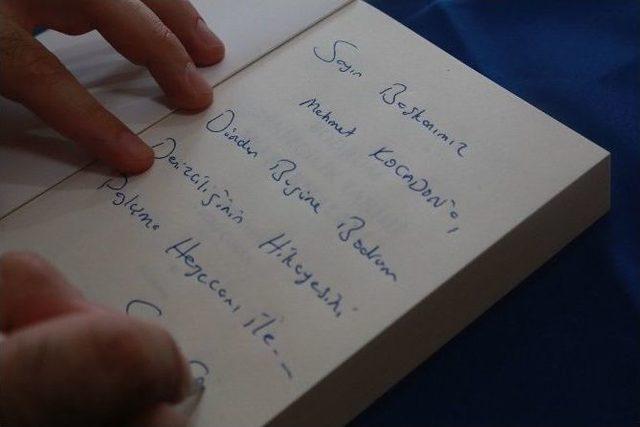 Sayın Başkanımız
Mehmet KOCADON'a,
Dünden Bugüne Bodrum
Denizciliğinin Hikayesini
Paylaşma Heyecanı ile...